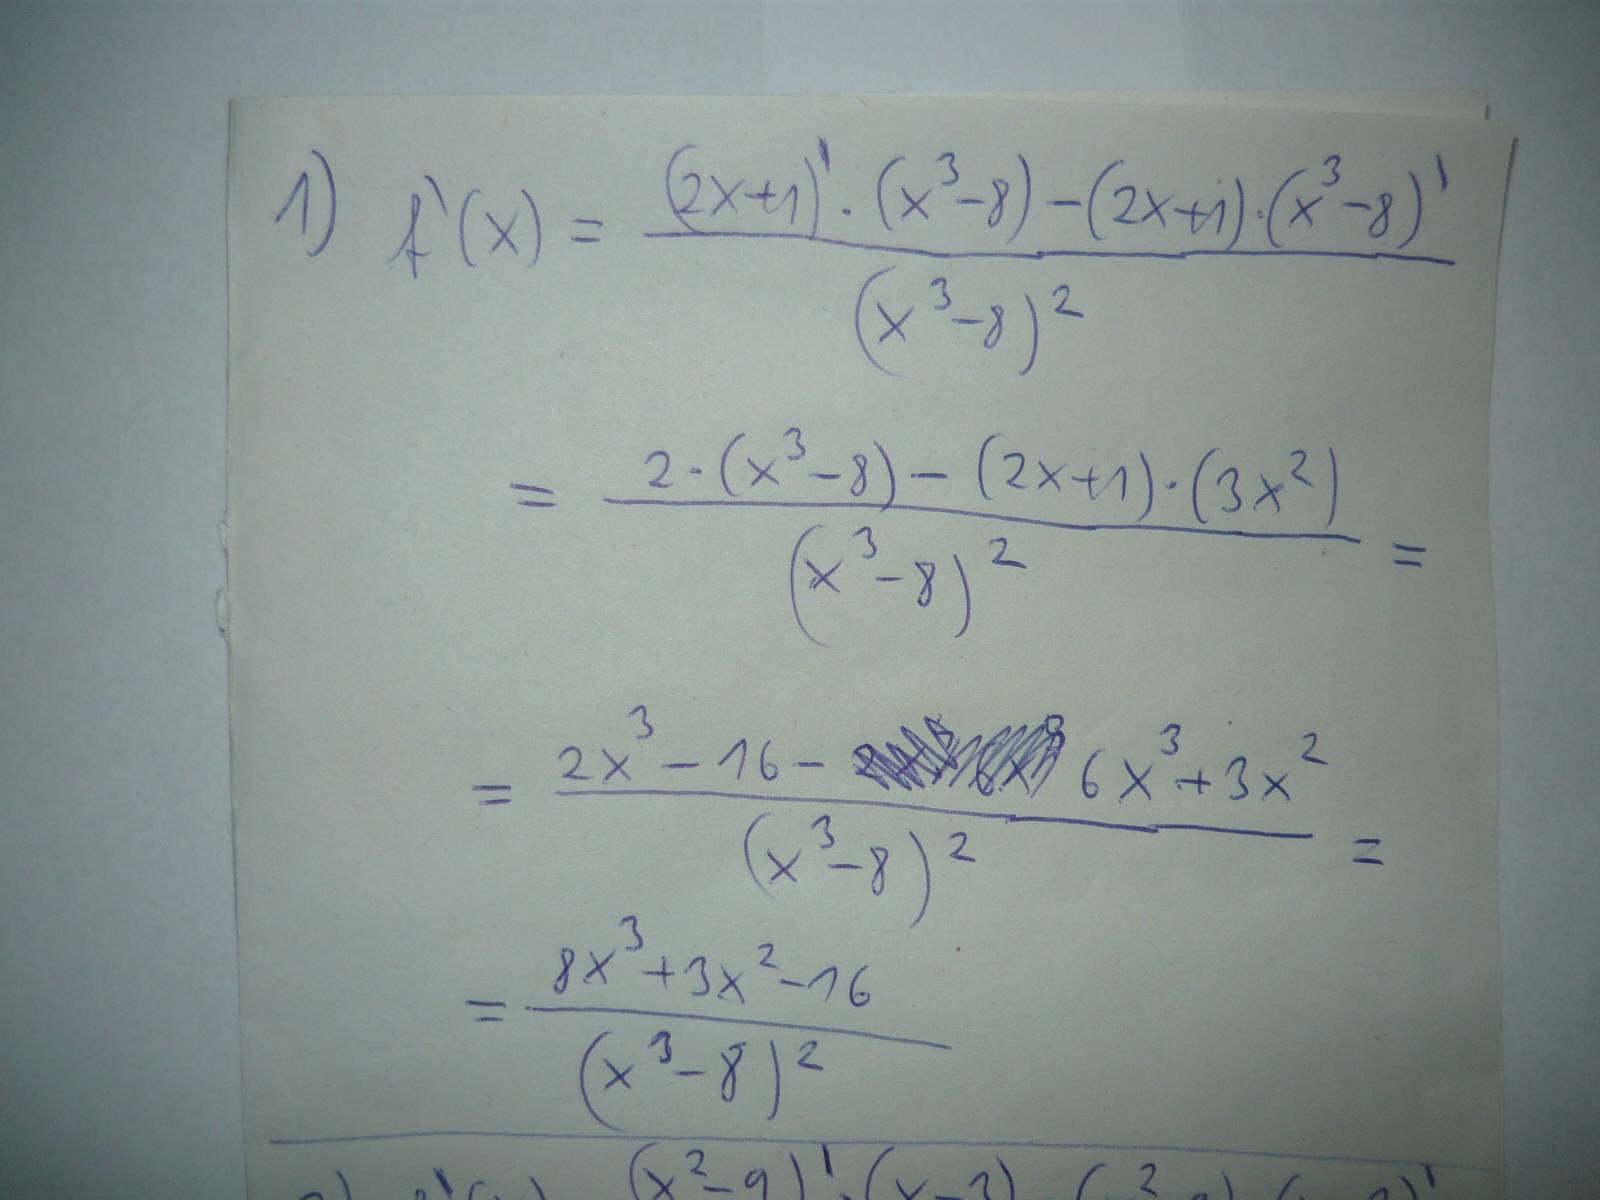 1) f'(x) = (2x+1)' · (x³-8) - (2x+1) · (x³-8)'
(x³-8)²
= 2 · (x³-8) - (2x+1) · (3x²) =
(x³-8)²
= 2x³ - 16 - 6x³ + 3x² =
(x³-8)²
= 8x³ + 3x² - 16
(x³-8)²
(x²-9)' · (x-3)